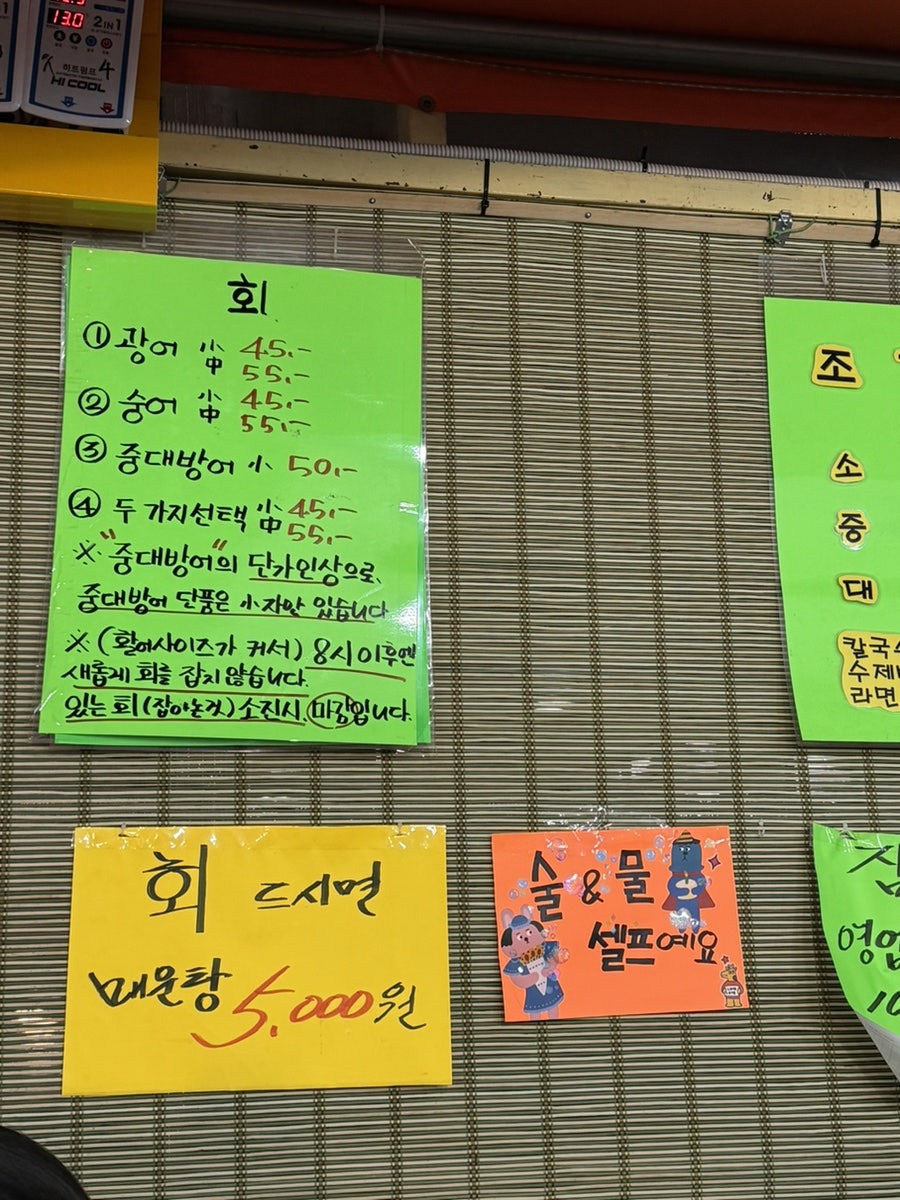 13.0
2 IN 1
히트펌프 4
HI COOL
회
① 광어 小 45.-
中 55.-
② 숭어 小 45.-
中 55.-
③ 중대방어 小 50.-
④ 두 가지선택 小 45.-
中 55.-
※ "중대방어"의 단가인상으로,
중대방어 단품은 小 자만 있습니다
※ (활어사이즈가 커서) 8시 이후엔
새롭게 회를 잡지 않습니다.
있는 회(잡아논것) 소진시, 마감입니다.
조
소
중
대
칼국수
수제비
라면
회 드시면
매운탕 5,000원
술 & 물
셀프예요
영업
10